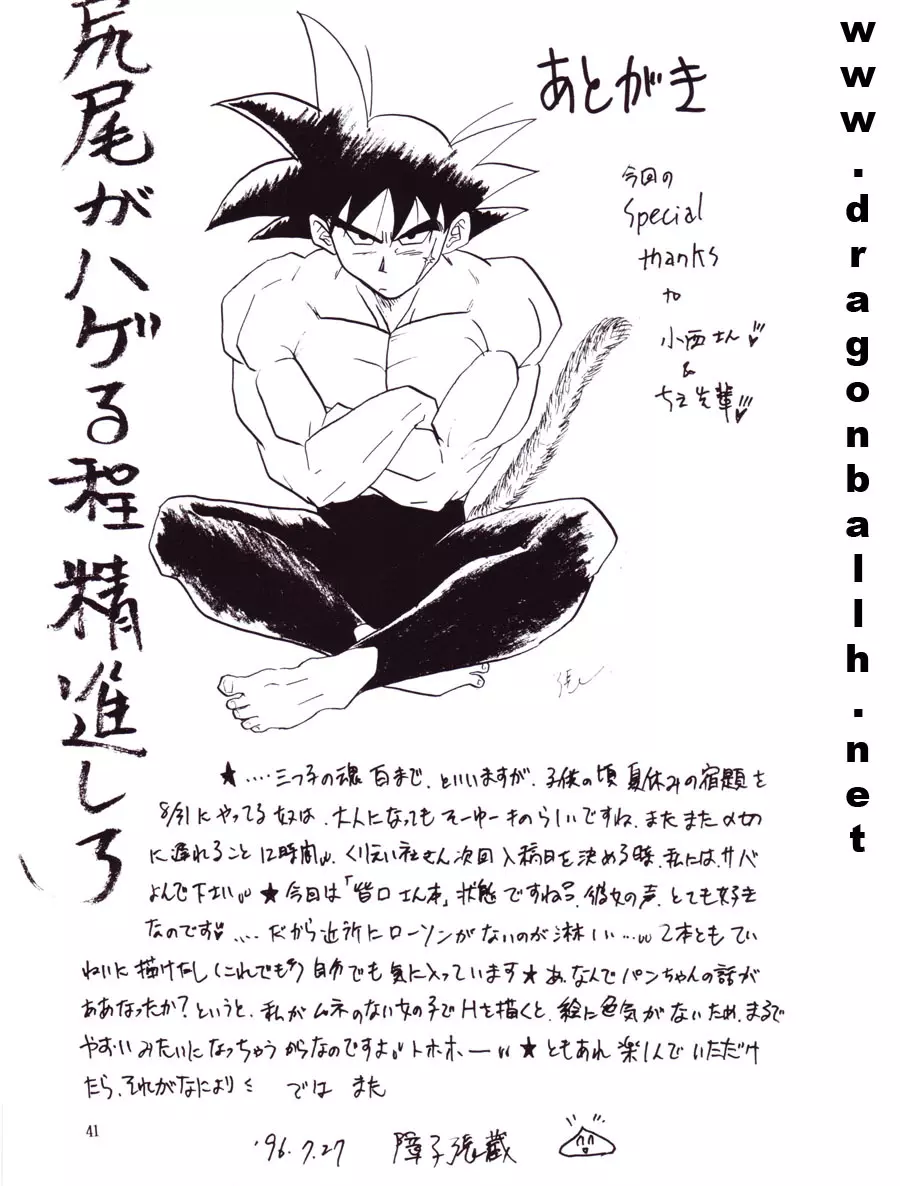 尻尾がハゲる程精進しろ
あとがき
今回の
Special
thanks
to
小西さん
&
ちえ先輩
★‥‥三つ子の魂百まで、といいますが、子供の頃夏休みの宿題を
8/31にやってる奴は、大人になってもそーゆーものらしいですね。またまた〆切
に遅れること12時間。くりえい社さん次回入稿日を決める時、私には、サバ
よんで下さい。★今回は「皆口さん本」状態ですね 彼女の声、とても好き
なのです ‥‥だから近所にローソンがないのが淋しい… 2本ともてい
ねいに描けたし(これでも)自分でも気に入っています★あ、なんでパンちゃんの話が
ああなったか?というと、私がムネのない女の子でHを描くと、絵に色気がないため、まるで
やおいみたいになっちゃうからなのですよ トホホー ★ともあれ楽しんでいただけ
たら、それがなにより では また
41
'96.7.27 障子張蔵
www.dragonballh.net